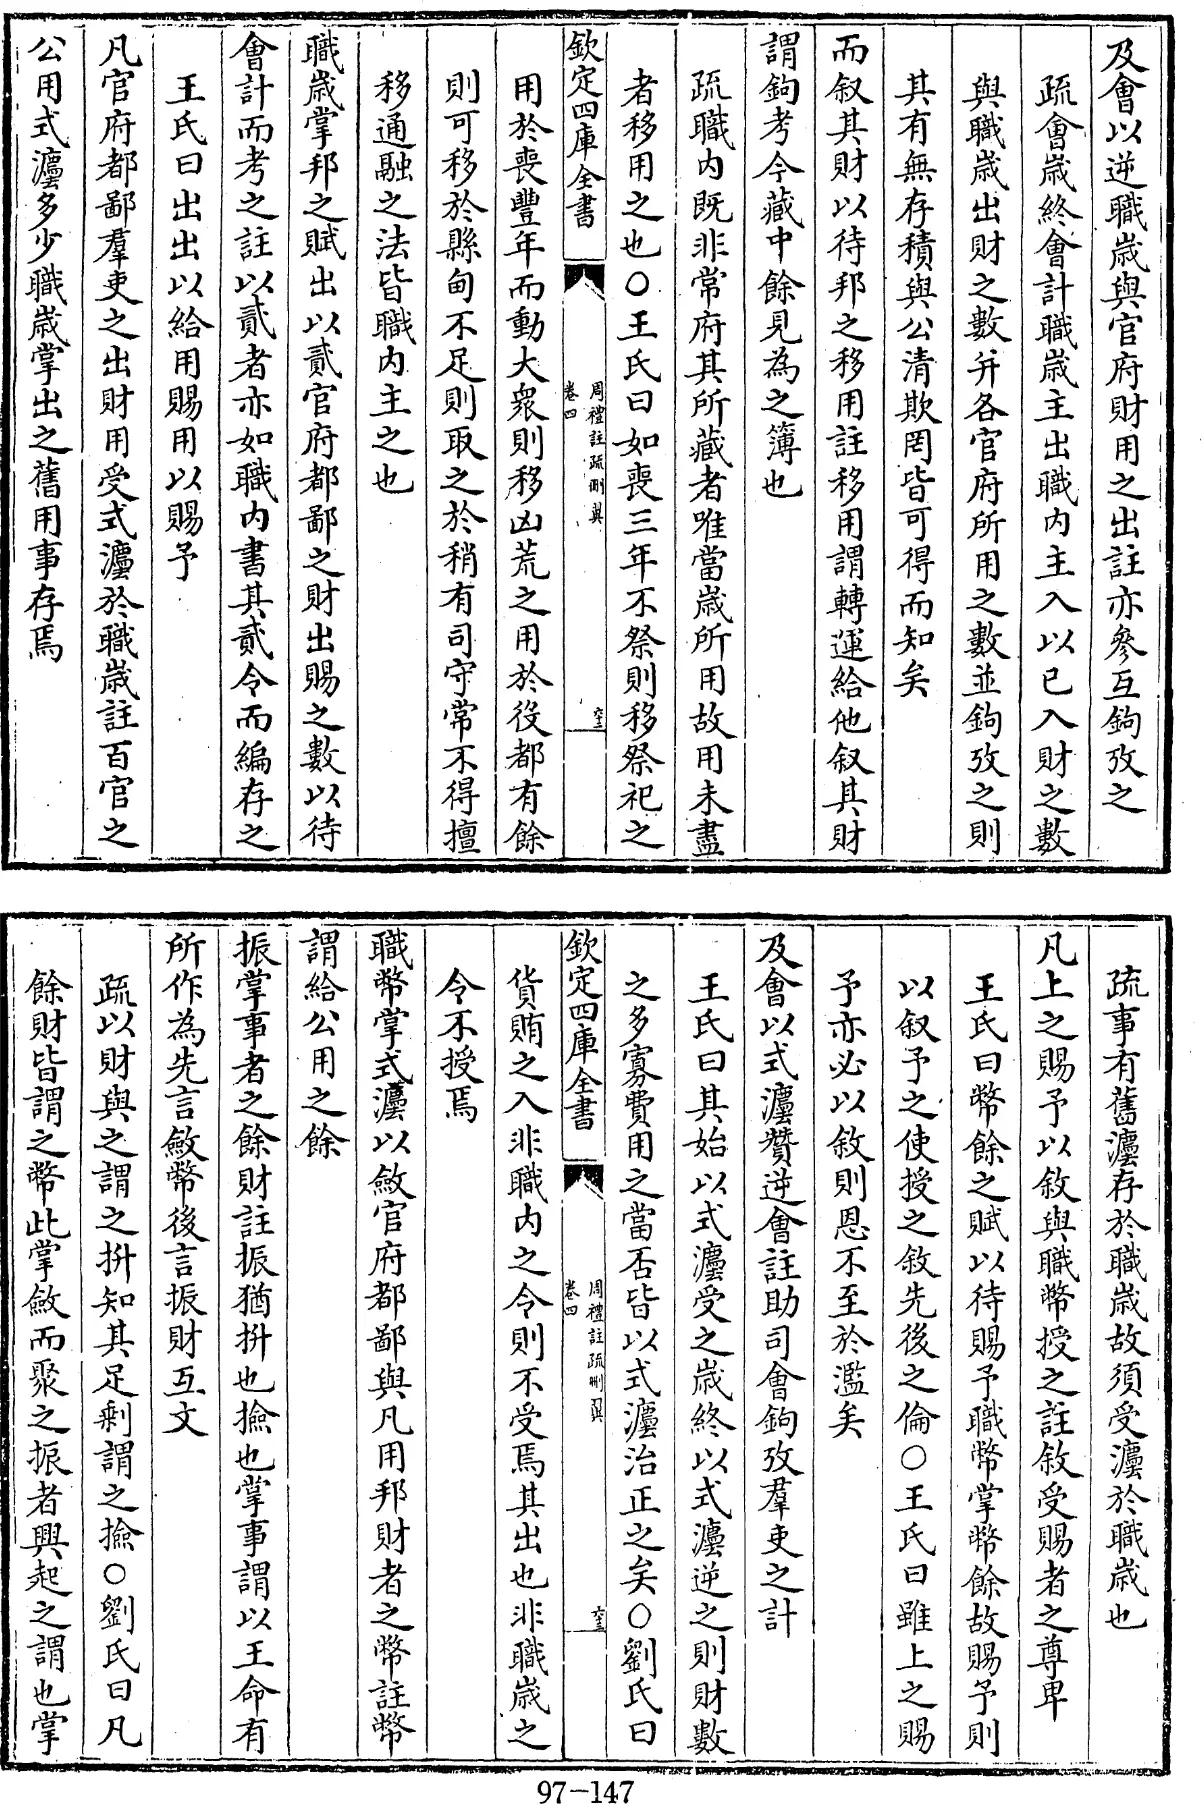 及會以逆職歲與官府財用之出註亦參互鉤攷之
疏會歲終會計職歲主出職内主入以已入財之數
與職歲出財之數并各官府所用之數並鉤攷之則
其有無存積與公清欺罔皆可得而知矣
而叙其財以待邦之移用註移用謂轉運給他叙其財
謂鉤考今藏中餘見為之簿也
疏職内既非常府其所藏者唯當歲所用故用未盡
者移用之也○王氏曰如喪三年不祭則移祭祀之
欽定四庫全書
周禮註疏刪翼
卷四
六十三
用於喪豐年而動大衆則移凶荒之用於役都有餘
則可移於縣甸不足則取之於稍有司守常不得擅
移通融之法皆職内主之也
職歲掌邦之賦出以貳官府都鄙之財出賜之數以待
會計而考之註以貳者亦如職内書其貳令而編存之
王氏曰出出以給用賜用以賜予
凡官府都鄙羣吏之出財用受式灋於職歲註百官之
公用式灋多少職歲掌出之舊用事存焉
疏事有舊灋存於職歲故須受灋於職歲也
凡上之賜予以敘與職幣授之註敘受賜者之尊卑
王氏曰幣餘之賦以待賜予職幣掌幣餘故賜予則
以叙予之使授之敘先後之倫○王氏曰雖上之賜
予亦必以敘則恩不至於濫矣
及會以式灋贊逆會註助司會鉤攷羣吏之計
王氏曰其始以式灋受之歲終以式灋逆之則財數
之多寡費用之當否皆以式灋治正之矣○劉氏曰
欽定四庫全書
周禮註疏刪翼
卷四
六十三
貨賄之入非職内之令則不受焉其出也非職歲之
令不授焉
職幣掌式灋以斂官府都鄙與凡用邦財者之幣註幣
謂給公用之餘
振掌事者之餘財註振猶抍也撿也掌事謂以王命有
所作為先言斂幣後言振財互文
疏以財與之謂之抍知其足剩謂之撿○劉氏曰凡
餘財皆謂之幣此掌斂而聚之振者興起之謂也掌
97-147